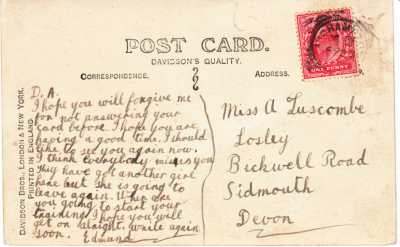 POST CARD.
DAVIDSON'S QUALITY.
CORRESPONDENCE.
ADDRESS.
DAVIDSON BROS., LONDON & NEW YORK.
PRINTED IN ENGLAND
D. A.
I hope you will forgive me
for not answering your
card before. I hope you are
having a good time. I should
like to see you again now.
I think everybody misses you
they have got another girl
here but she is going to
leave again. When are
you going to start your
training I hope you will
get on alright. write again
soon. Edmund
Miss A Luscombe
Losley
Bickwell Road
Sidmouth
Devon
ONE PENNY